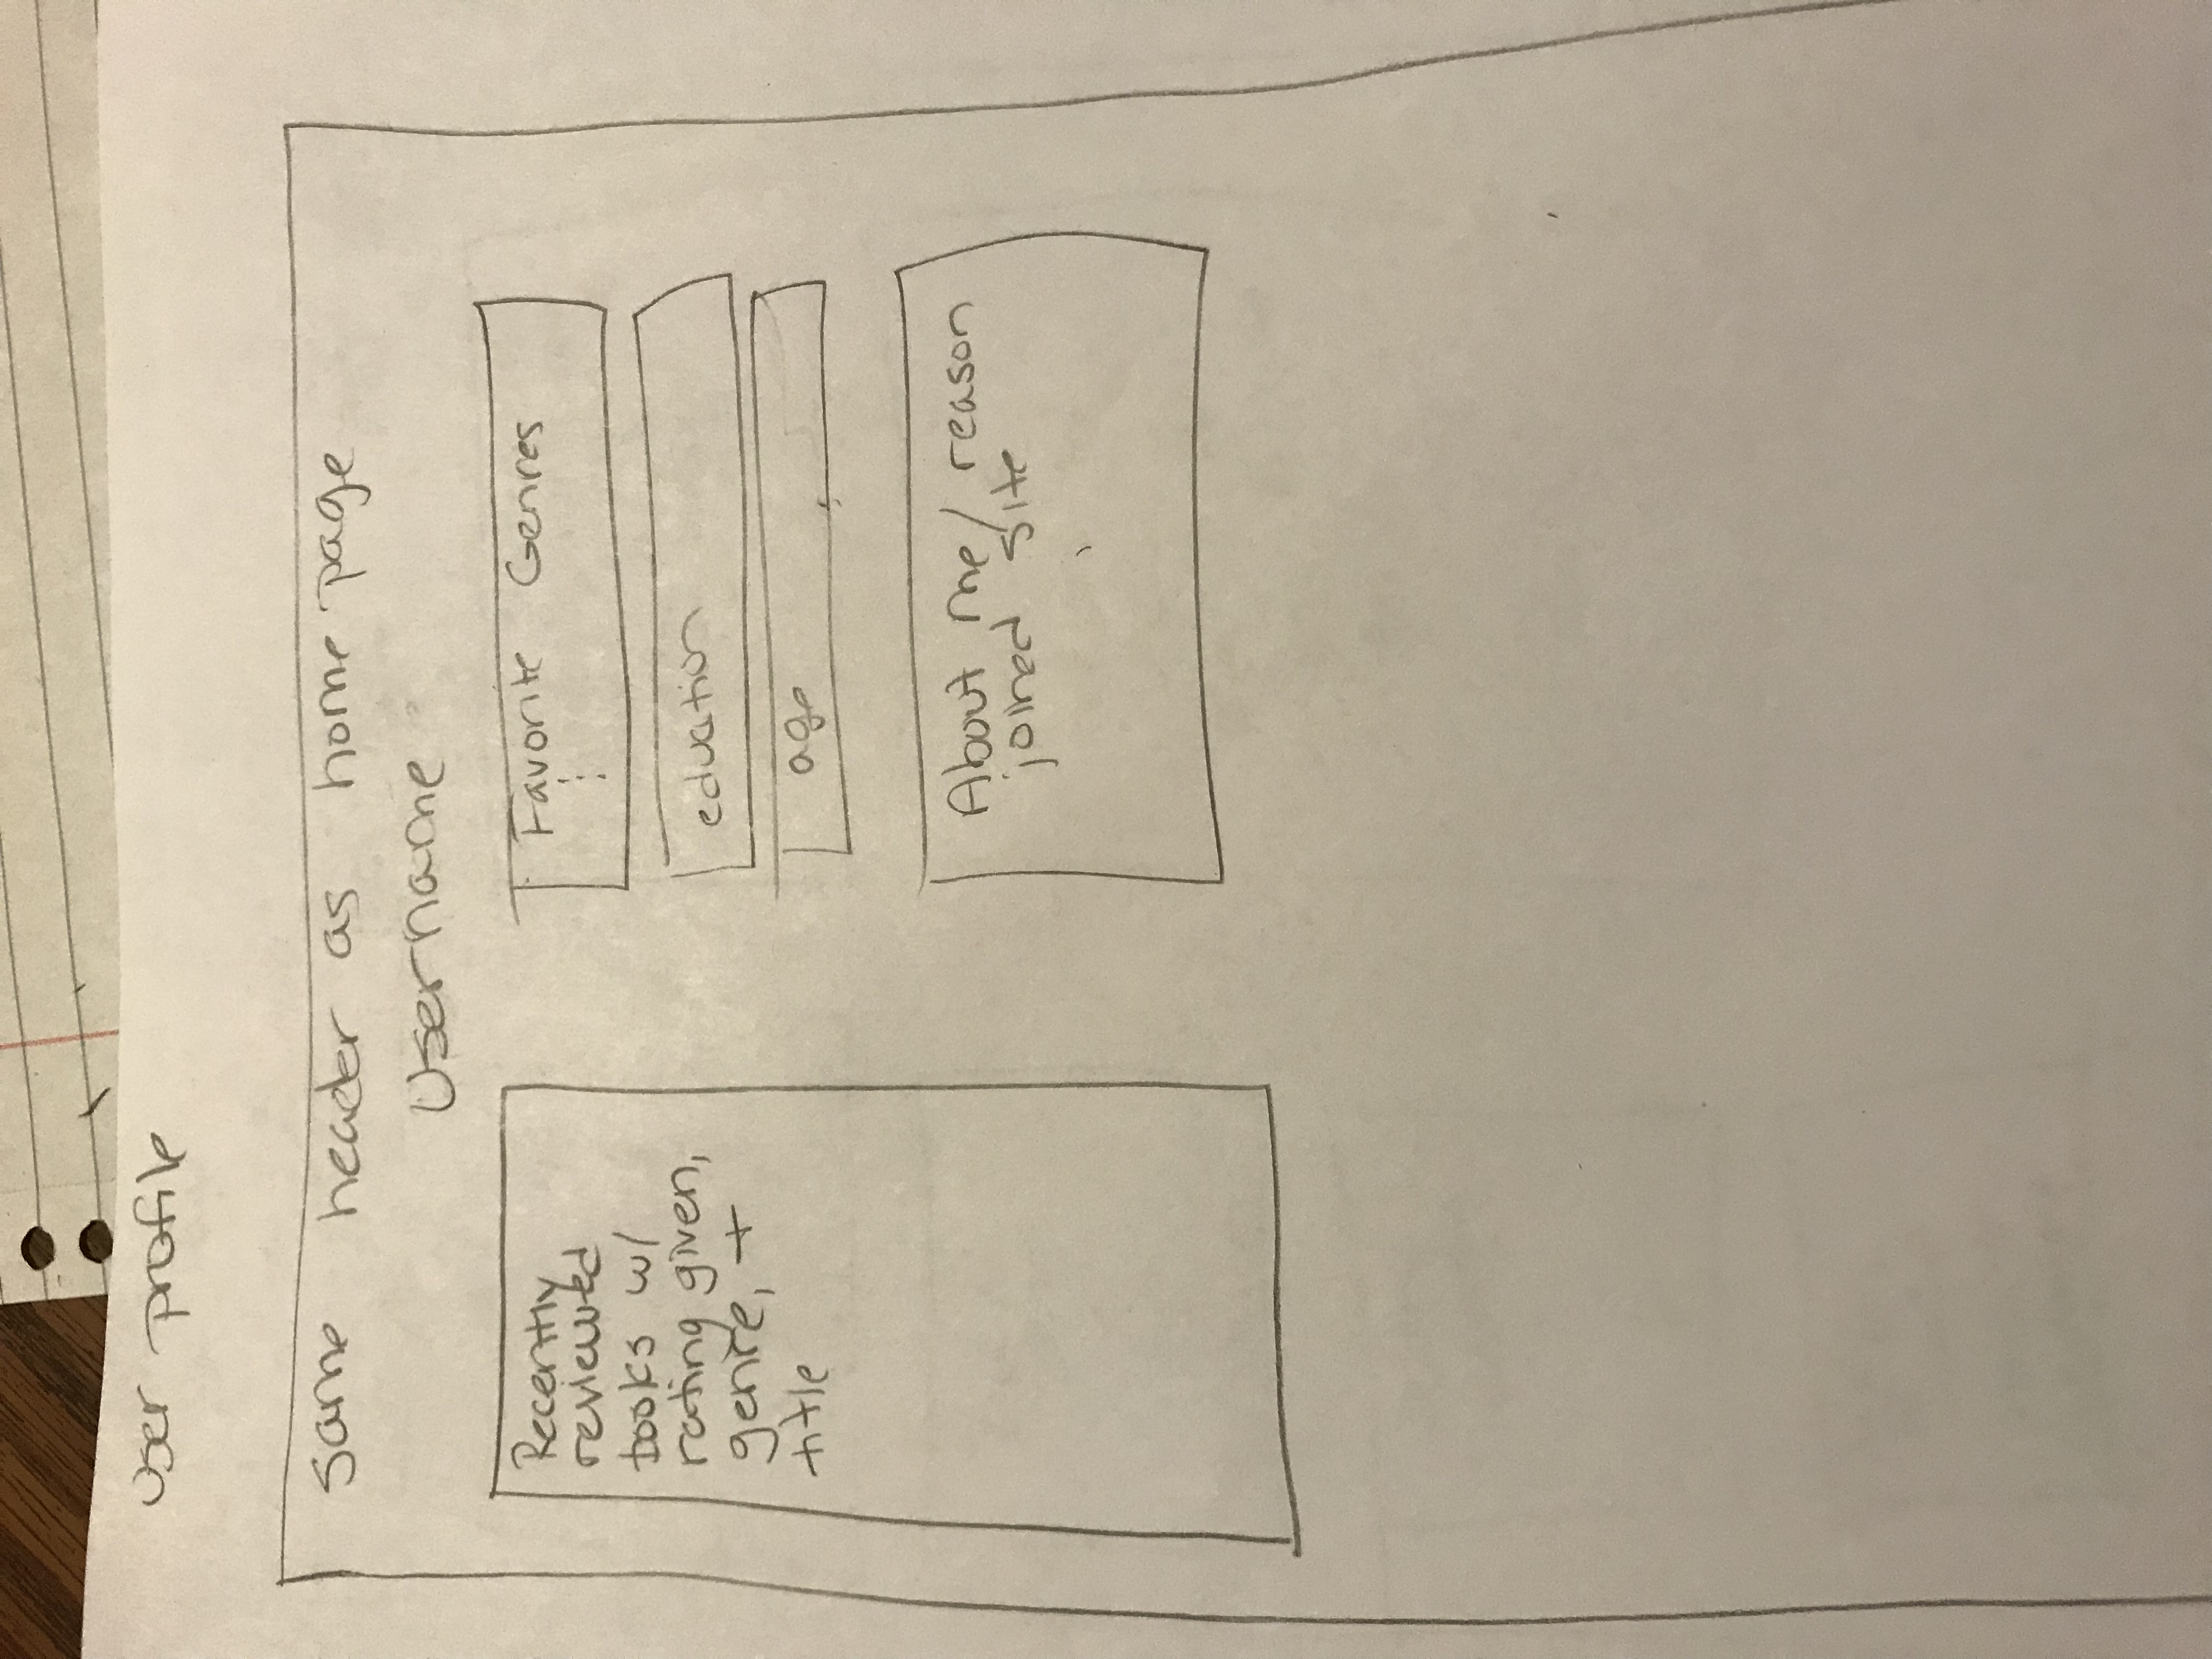 User profile
Same header as home page
Username
Recently
reviewed
books w/
rating given,
genre, +
title
Favorite Genres
education
age
About me/ reason
joined site